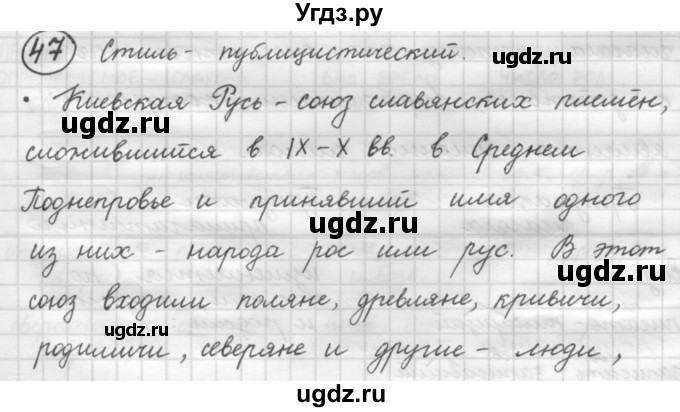 Угдз.ру
47 Стиль - публицистический.
• Киевская Русь - союз славянских племён,
сложившийся в IX - X вв. в Среднем
Поднепровье и принявший имя одного
из них - народа рос или рус. В этот
союз входили поляне, древляне, кривичи,
родимичи, северяне и другие - люди,
ugdz.ru
ugdz.ru
ugdz.ru
ugdz.ru
ugdz.ru
ugdz.ru
ugdz.ru
ugdz.ru